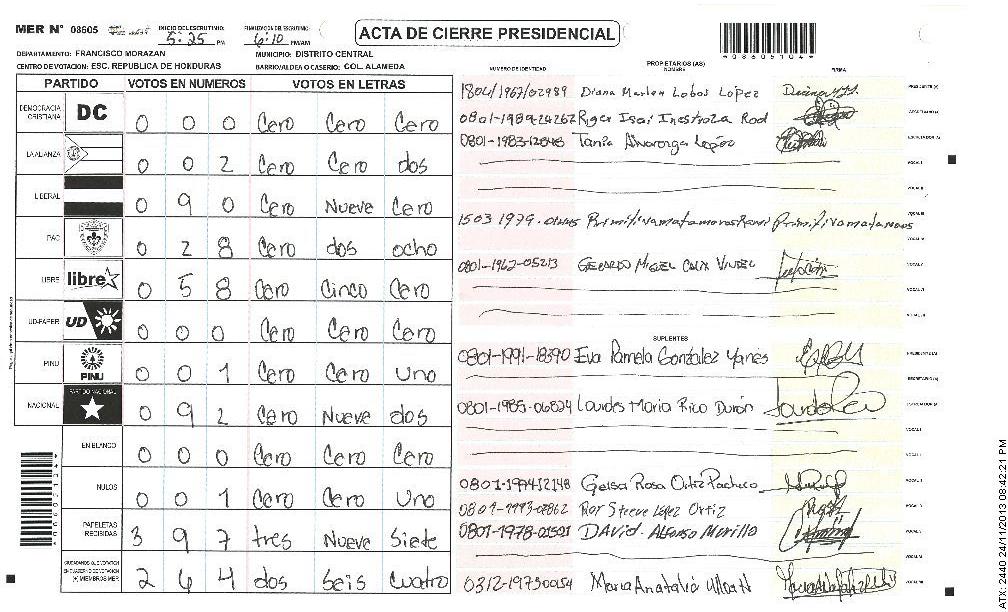 MER Nº 08605 INICIO DE ESCRUTINIO: 5:25 PM FINALIZACION DE ESCRUTINIO: 6:10 PM/AM ACTA DE CIERRE PRESIDENCIAL
*08605104*
DEPARTAMENTO: FRANCISCO MORAZAN MUNICIPIO: DISTRITO CENTRAL
CENTRO DE VOTACION: ESC. REPUBLICA DE HONDURAS BARRIO/ALDEA O CASERIO: COL. ALAMEDA
PARTIDO VOTOS EN NUMEROS VOTOS EN LETRAS
DEMOCRACIA CRISTIANA DC 0 0 0 Cero Cero Cero
LA ALIANZA 0 0 2 Cero Cero dos
LIBERAL 0 9 0 Cero Nueve Cero
PAC 0 2 8 Cero dos ocho
LIBRE libre 0 5 8 Cero Cinco Cero
UD-FAPER UD 0 0 0 Cero Cero Cero
PINU PINU 0 0 1 Cero Cero uno
NACIONAL PARTIDO NACIONAL 0 9 2 Cero Nueve dos
EN BLANCO 0 0 0 Cero Cero Cero
NULOS 0 0 1 Cero Cero uno
PAPELETAS RECIBIDAS 3 9 7 tres Nueve Siete
2 6 4 dos Seis Cuatro
NUMERO DE IDENTIDAD PROPIETARIOS (AS) NOMBRE FIRMA
1804/1967/02989 Diana Marlen Lobos Lopez PRESIDENTE (A)
Roger Isai Inestroza Rod SECRETARIO (A)
0801-1983-12848 Tania Alvarenga López ESCRUTADOR (A)
VOCAL I
VOCAL II
1503 1979 VOCAL III
VOCAL IV
0801-1962-05213 GERARDO MIGUEL CALIX VINDEL VOCAL V
VOCAL VI
VOCAL VII
SUPLENTES
0801-1991-18390 Eva Pamela González Yanes PRESIDENTE (A)
SECRETARIO (A)
0801-1985-06824 Lourdes Maria Rico Durón ESCRUTADOR (A)
VOCAL I
VOCAL II
0801-1994-12148 Geisa Rosa Ortiz Pacheco
Steeve Lopez Ortiz
0801-1978-01501 DAVID Alfonso Murillo
0312-1975 Maria Anatalia
ATX: 2440 24/11/2013 08:42:21 PM